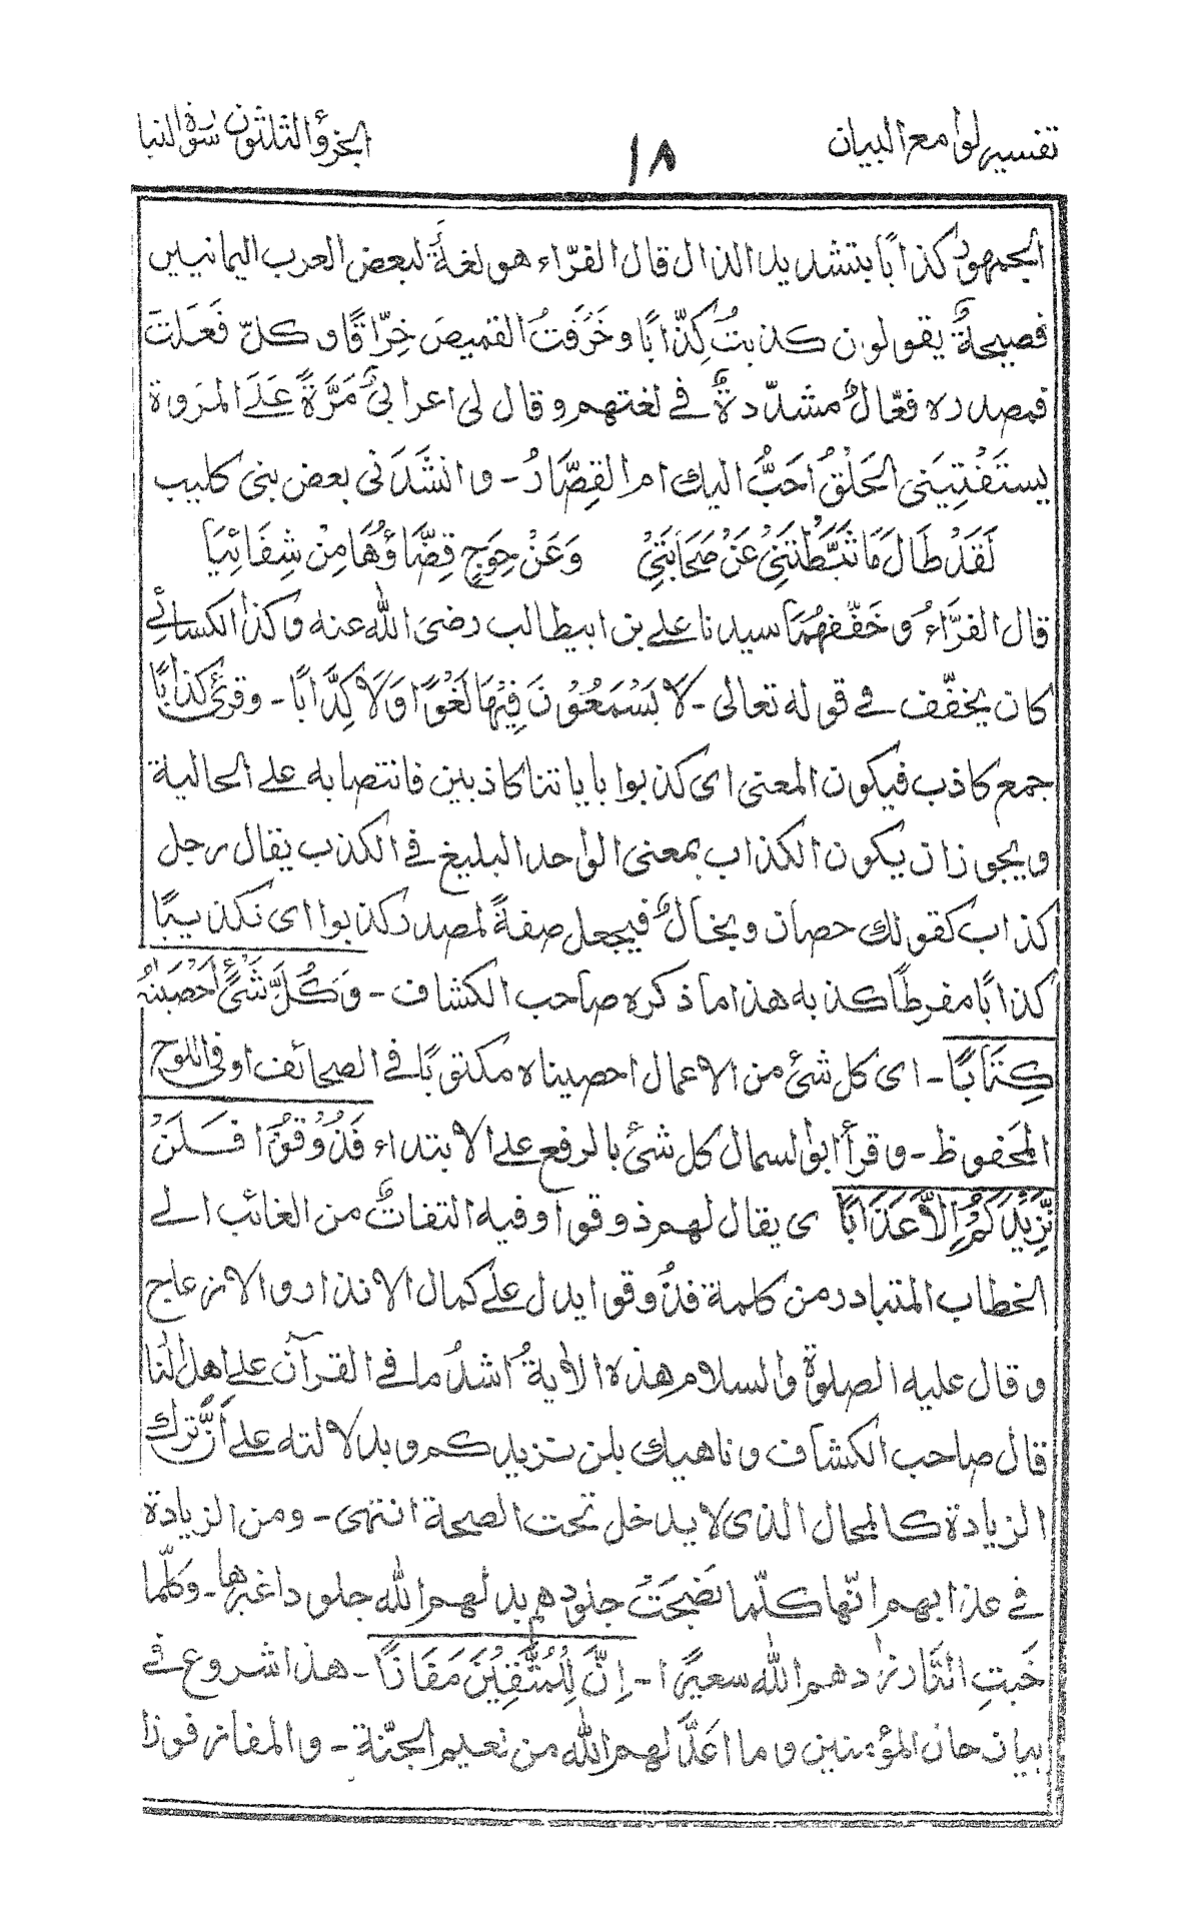 تفسير لوامع البيان
١٨
الجزؤ الثلثون سورة النبا
الجمهور كذابا بتشديد الذال قال الفرّاء هو لغة لبعض العرب اليمانيين
فصيحةٌ يقولون كذبتُ كِذّابًا وخَرَّقتُ القميصَ خِرّاقًا وكلّ فَعَّلتَ
فمصدره فعّالٌ مشدّدةٌ في لغتهم وقال لى اعرابىٌّ مَرَّةً عَلَى المَروة
يستَفْتِيَنى الحَلْقُ اَحَبُّ اليك ام القِصَّارُ - وانشَدَنى بعض بنى كليب
لَقَدْ طَالَ مَا ثَبَّطَتْنِىْ عَنْ صَحَابَتِىْ وَعَنْ حِوَجٍ قِضَّاؤُهَا مِنْ شِفَائِيَا
قال الفرّاءُ وخَفّفهُمَا سيدنا على بن ابيطالب رضى الله عنه وكذا الكسائى
كان يخفّف فى قوله تعالى - لَا يَسْمَعُوْنَ فِيْهَا لَغْوًا وَّلَا كِذَّابًا - وقرئ كذابًا
جمع كاذب فيكون المعنى اى كذبوا باياتنا كاذبين فانتصابه على الحالية
ويجوز ان يكون الكذاب بمعنى الواحد البليغ فى الكذب يقال رجل
كذاب كقولك حصان وبخالٌ فيجعل صفةً لمصدر كذبوا اى تكذيبًا
كذابًا مفرطًا كذبه هذا ما ذكره صاحب الكشاف - وَكُلَّ شَىْءٍ اَحْصَيْنٰهُ
كِتَابًا - اى كل شئ من الاعمال احصيناه مكتوبًا فى الصحائف او فى اللوح
المحَفوظ - وقرأ ابو السمال كل شئ بالرفع على الابتداء فَذُوْقُوْا فَلَنْ
نَّزِيْدَكُمْ اِلَّا عَذَابًا ى يقال لهم ذوقوا وفيه التفاتٌ من الغائب الى
الخطاب المتبادر من كلمة فذُوقوا يدل على كمال الانذار والازعاج
وقال عليه الصلوة والسلام هذه الاية اشدُّ ما فى القرآن على اهل النا
قال صاحب الكشاف وناهيك بلن نزيدكم وبدلالته على اَنَّ ترك
الزيادة كالمحال الذى لا يدخل تحت الصحة انتهى - ومن الزيادة
فى عذابهم انّها كلّما نَضِجَتْ جلودهم بدلهم الله جلودا غيرها - وكلّما
خَبتِ النّار زادهم الله سعيرًا - اِنَّ لِلْمُتَّقِيْنَ مَفَازًا - هذا شروع فى
بيان حال المؤمنين وما اَعَدَّ لهم الله من نعيم الجنّة - والمفاز فوزا